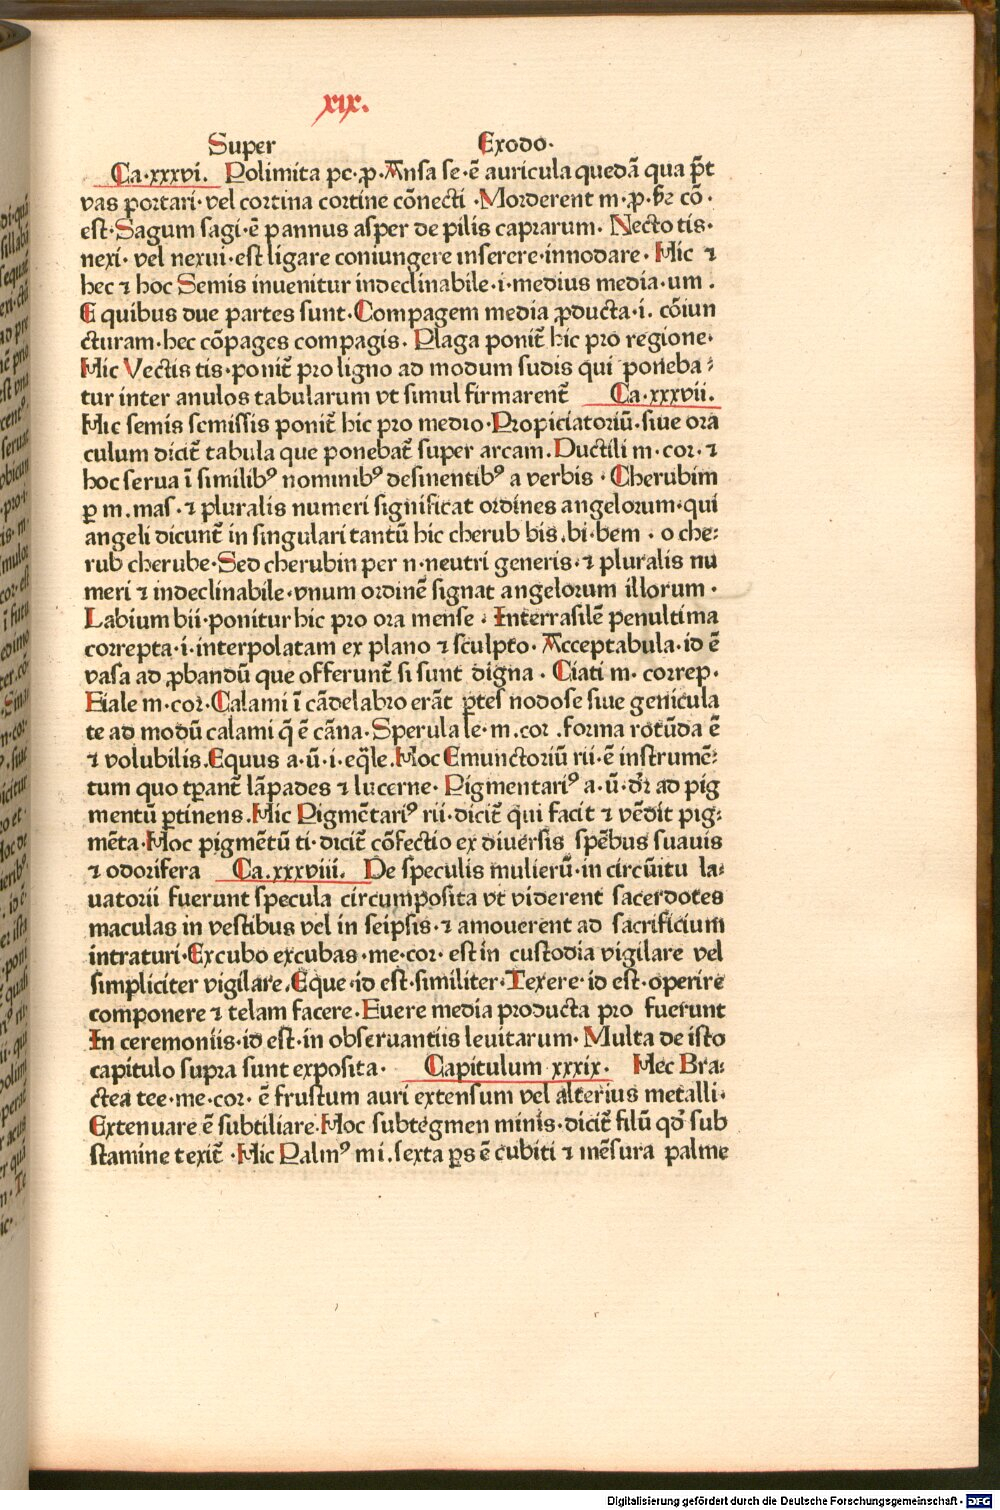 xix.
Super Exodo.
Ca.xxxvi. Polimita pe.ꝓ. Ansa se.ē auricula quedā qua p̄t
vas portari.vel cortina cortine cōnecti.Morderent m.ꝓ. cō.
est.Sagum sagi.ē pannus asper de pilis caprarum. Necto tis.
nexi. vel nexui.est ligare coniungere inserere.innodare. Hic ⁊
hec ⁊ hoc Semis inuenitur indeclinabile.i.medius media.um.
E quibus due partes sunt.Compagem media ꝓducta.i. cōiun
cturam.hec cōpages compagis. Plaga ponit̄ hic pro regione.
Hic Vectis tis.ponit̄ pro ligno ad modum sudis qui poneba⸗
tur inter anulos tabularum vt simul firmarent̄ Ca.xxxvii.
Hic semis semissis ponit̄ hic pro medio.Propiciatoriū.siue ora
culum dicit̄ tabula que ponebat̄ super arcam.Ductili m.cor.⁊
hoc serua ī similibꝰ nominibꝰ desinentibꝰ a verbis.Cherubim
ꝑ m.mas.⁊ pluralis numeri significat ordines angelorum.qui
angeli dicunt̄ in singulari tantū hic cherub bis.bi.bem.o che⸗
rub cherube.Sed cherubin per n.neutri generis.⁊ pluralis nu
meri ⁊ indeclinabile.vnum ordinē signat angelorum illorum.
Labium bii.ponitur hic pro ora mense.Interrasilē penultima
correpta.i.interpolatam ex plano ⁊ sculpto. Acceptabula.id ē
vasa ad ꝓbandū que offerunt̄ si sunt digna. Ciati m. correp.
Fiale m.cor.Calami ī cādelabro erāt ꝑtes nodose siue genicula
te ad modū calami q̄ ē cāna.Sperula le.m.cor.forma rotūda ē
⁊ volubilis.Equus a.ū.i.eq̄le.Hoc Emunctoriū rii.ē instrumē⸗
tum quo tꝑant̄ lāpades ⁊ lucerne. Pigmentariꝰ a.ū.dr̄ ad pig
mentū ꝑtinens.Hic Pigmētariꝰ rii.dicit̄ qui facit ⁊ vēdit pig⸗
mēta.Hoc pigmētū ti.dicit̄ cōfectio ex diuersis spēbus suauis
⁊ odorifera Ca.xxxviii. De speculis mulierū.in circūitu la⸗
uatorii fuerunt specula circumposita vt viderent sacerdotes
maculas in vestibus vel in seipsis.⁊ amouerent ad sacrificium
intraturi.Excubo excubas.me.cor. est in custodia vigilare vel
simpliciter vigilare.Eque.id est.similiter.Texere.id est.operire
componere ⁊ telam facere.Fuere media producta pro fuerunt
In ceremoniis.id est.in obseruantiis leuitarum.Multa de isto
capitulo supra sunt exposita. Capitulum xxxix. Hec Bra⸗
ctea tee.me.cor. ē frustum auri extensum vel alterius metalli.
Extenuare ē subtiliare.Hoc subtegmen minis.dicit̄ filū qd̓ sub
stamine texit̄.Hic Palmꝰ mi.sexta ꝑs ē cubiti ⁊ mēsura palme
Digitalisierung gefördert durch die Deutsche Forschungsgemeinschaft - DFG